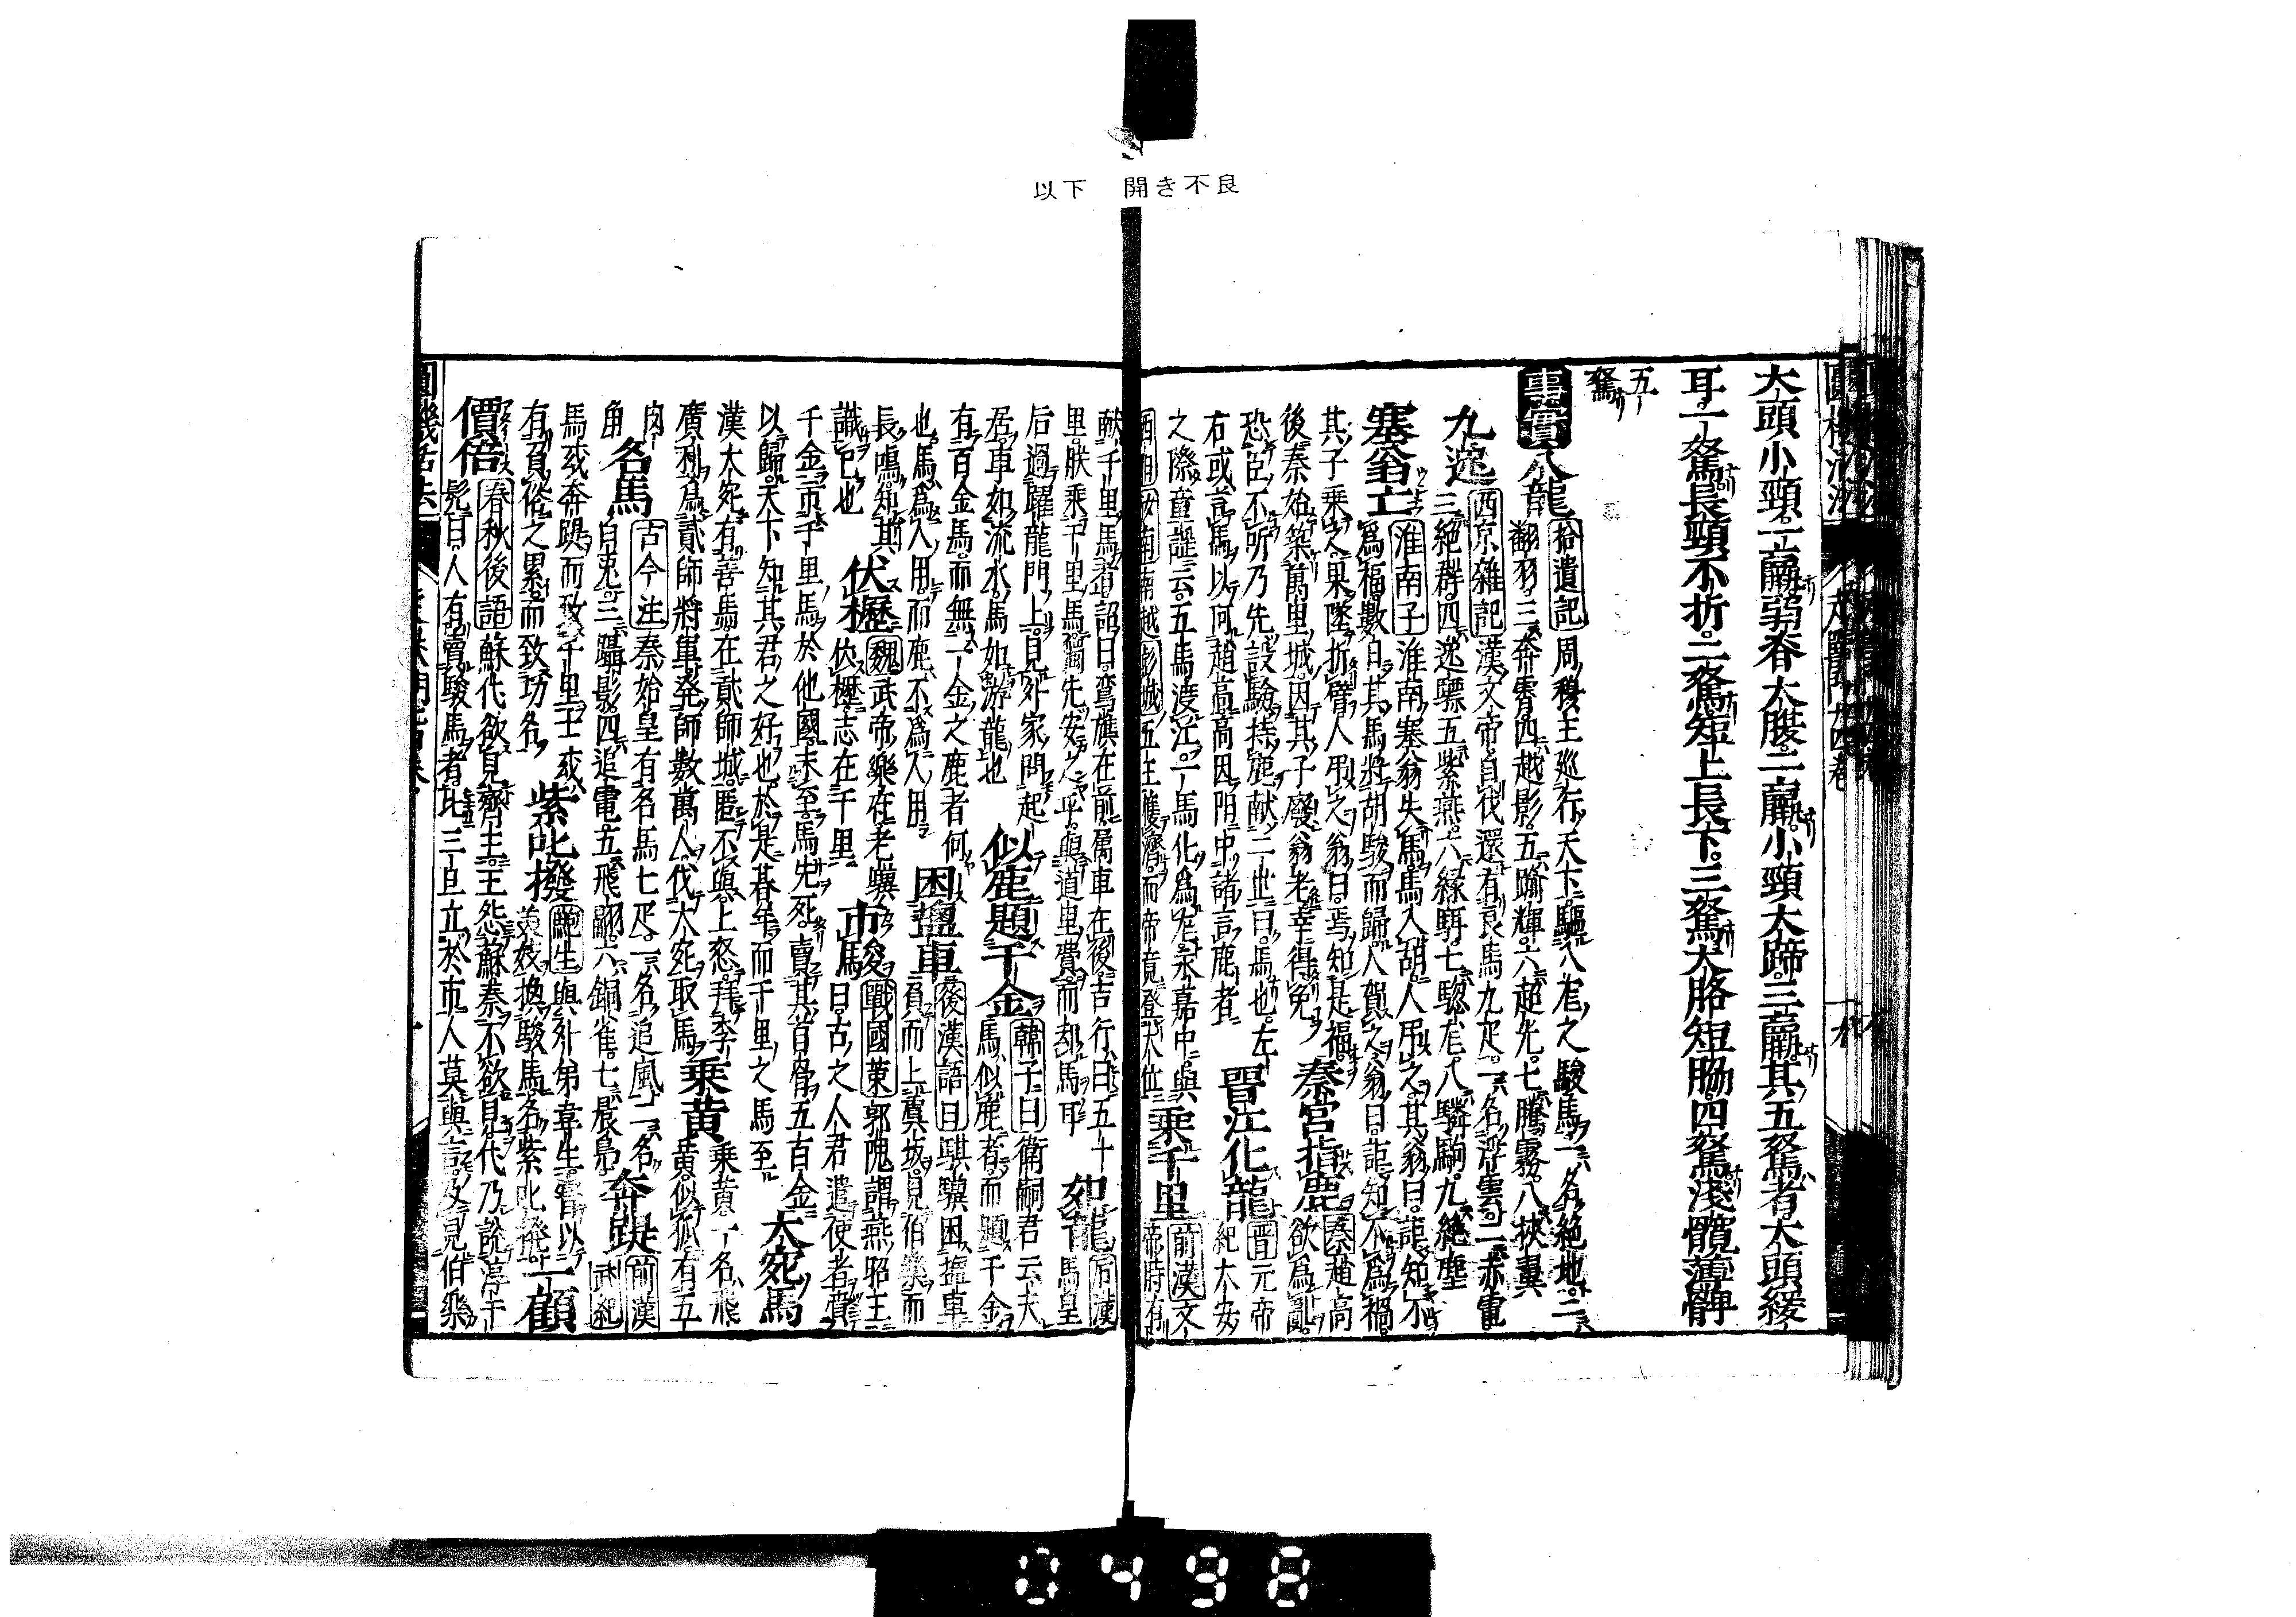 以下　開き不良
大頭小頸一羸弱脊大腹二羸小頸大蹄三羸其五駑者大頭緩
耳一駑長頸不折二駑短上長下三駑大胳短肠四駑淺髖薄髀
五
駑
事實
八龍
拾遺記
周穆王巡行天下驅八龍之駿馬一名絶地二
翻羽三奔霄四越影五踰輝六超光七騰霧八挾翼
九逸
西京雜記
漢文帝自代還有良馬九疋一名浮雲二赤電
三絶群四逸驃五紫燕六緑駬七驄龍八驎駒九絶塵
塞翁亡
淮南子
淮南塞翁失馬馬入胡人吊之其翁曰詎知不
爲福數日其馬將胡駿而歸人賀之翁曰詎知不爲禍
其子乗之果墜折臂人吊之翁曰焉知是福
秦宮指鹿
秦趙高
後秦始築萬里城因其子廢翁老幸得免
欲爲亂
恐臣不听乃先設驗持鹿献二世曰馬也左
晋江化龍
晋元帝
右或言馬以何趙高高因阴中諸言鹿者
紀太安
之際童謡云五馬渡江一馬化爲龍永嘉中與
乗千里
前漢文
西陽汝南南越彭城五王獲濟而帝竟登大位
帝時有
献千里馬者詔曰鸞旗在前属車在後吉行日五十
如龍
后漢
里朕乗千里馬獨先安之乎與道里費而却馬耳
馬皇
后過躍龍門上見外家問起
似鹿題千金
韓子曰
衛嗣君云夫
居車如流水馬如游龍也
馬似鹿者而題千金
有百金馬而無一金之鹿者何
困盬車
後漢語曰
騏驥困塩車
也馬爲人用而鹿不爲人用
負而上㠉坂見伯樂而
長鳴知其
伏櫪
魏
武帝樂在老驥
市駿
戰國策
郭隗謂燕昭王
識已也
伏櫪志在千里
曰古之人君遣使者賷
千金市千里馬於他國未至馬先死賣其首骨五百金
大宛馬
以歸天下知其君之好也於是朞年而千里之馬至
漢大宛有善馬在貳師城匿不與上怒拜李
乗黄
乗黄一名飛
廣利爲貳師將軍発師數萬人伐大宛取馬
黄似狐有五
肉
名馬
古今注
秦始皇有名馬七疋一名追風二名
奔踶
前漢
角
白兎三躡影四追電五飛翮六銅雀七晨鳧
武紀
馬或奔踶而致千里士或
紫叱撥
鮑生
與外弟韋生㽞以
一顧
有負俗之累而致功名
美妓換駿馬名紫叱撥
價倍
春秋後語
蘇代欲見齊王王怨蘇秦不欲見代乃説淳于
髡曰人有賣駿馬者比三旦立於市人莫與言及見伯樂
0498